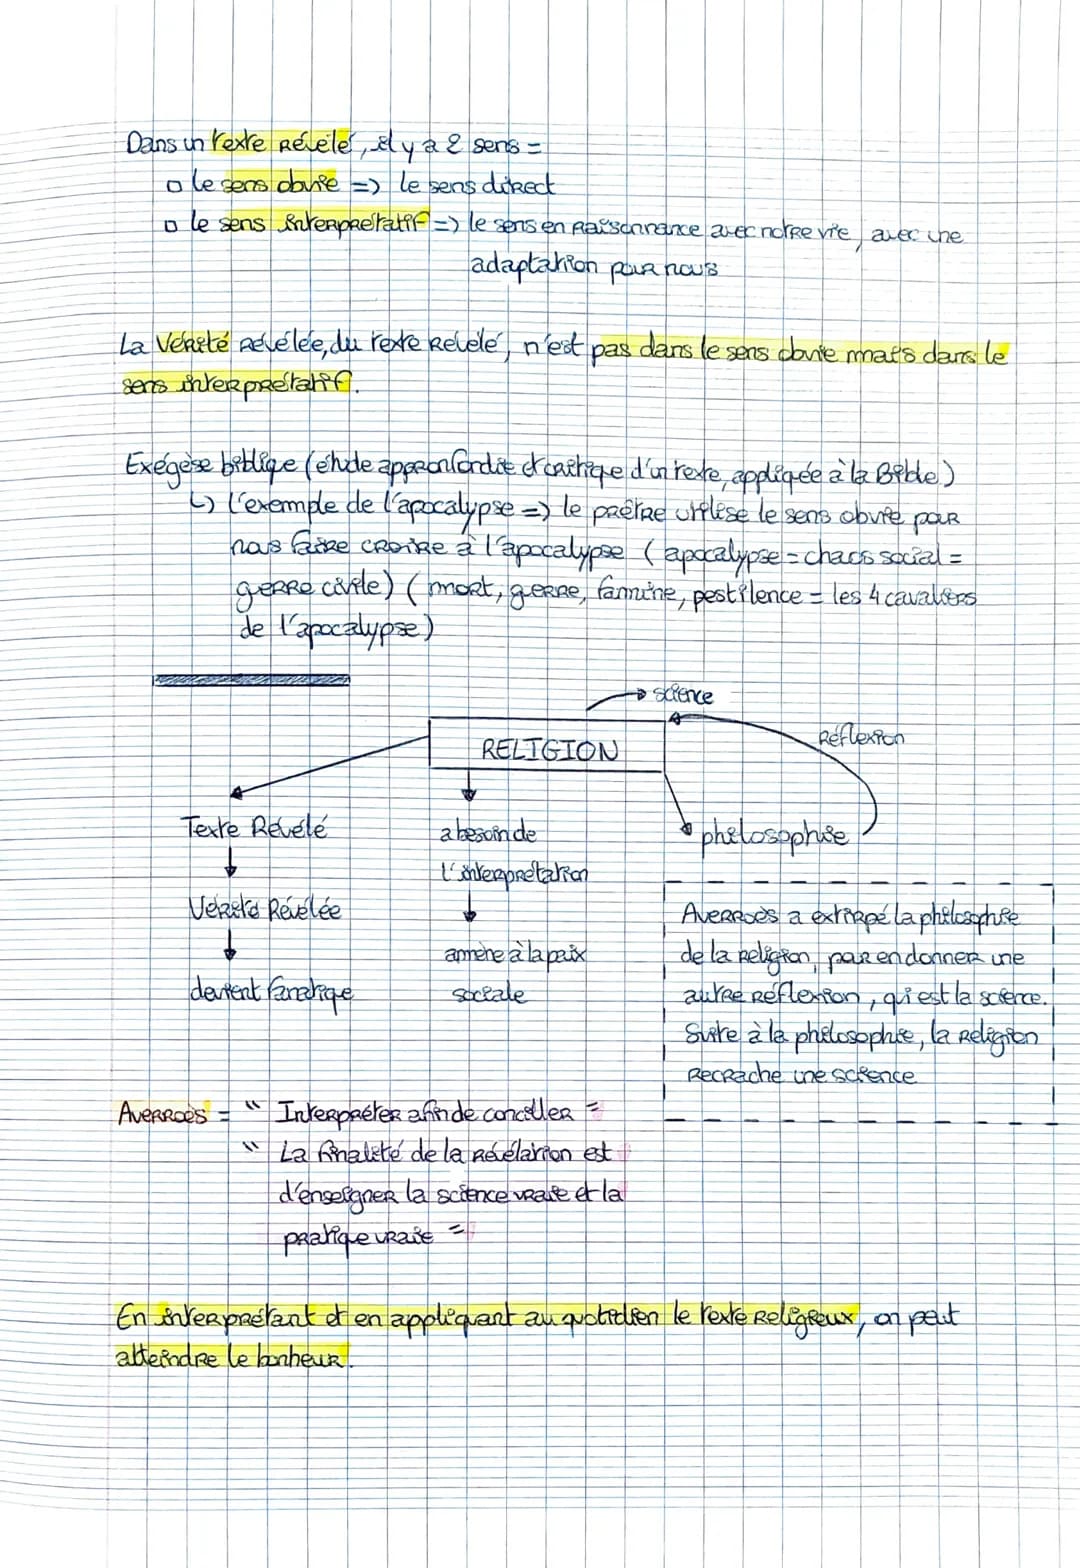 Dans un texte Révélé, il y a 2 sens =
o le sens obvie => le sens direct
o le sens interprétatif => le sens en raisonnance avec notre vie, avec une
adaptation pour nous
La Vérité Révélée, du texte Révélé, n'est pas dans le sens obvie mais dans le
sens interprétatif.
Exégèse biblique (étude approonfondie et critique d'un texte, appliquée à la Bible)
↳ l'exemple de l'apocalypse => le prêtre utilise le sens obvie pour
nous faire croire à l'apocalypse (apocalypse = chaos social =
gerre civile) (mort, gerre, fammine, pestilence = les 4 cavaliers
de l'apocalypse)
science
Réflexion
RELIGION
Texte Révélé
a besoin de
philosophie
l'interprétation
Vérité Révélée
Averroès a extirpé la philosophie
amène à la paix
de la religion, par en donner une
devient fanatique
sociale
autre réflexion, qui est la science.
Suite à la philosophie, la religion
recrache une science
Averroès = " Interpréter afin de conciller "
" La finalité de la révélation est
d'enseigner la science vraie et la
pratique vraie "
En interprétant et en appliquant au quotidien le texte religieux, on peut
atteindre le bonheur.